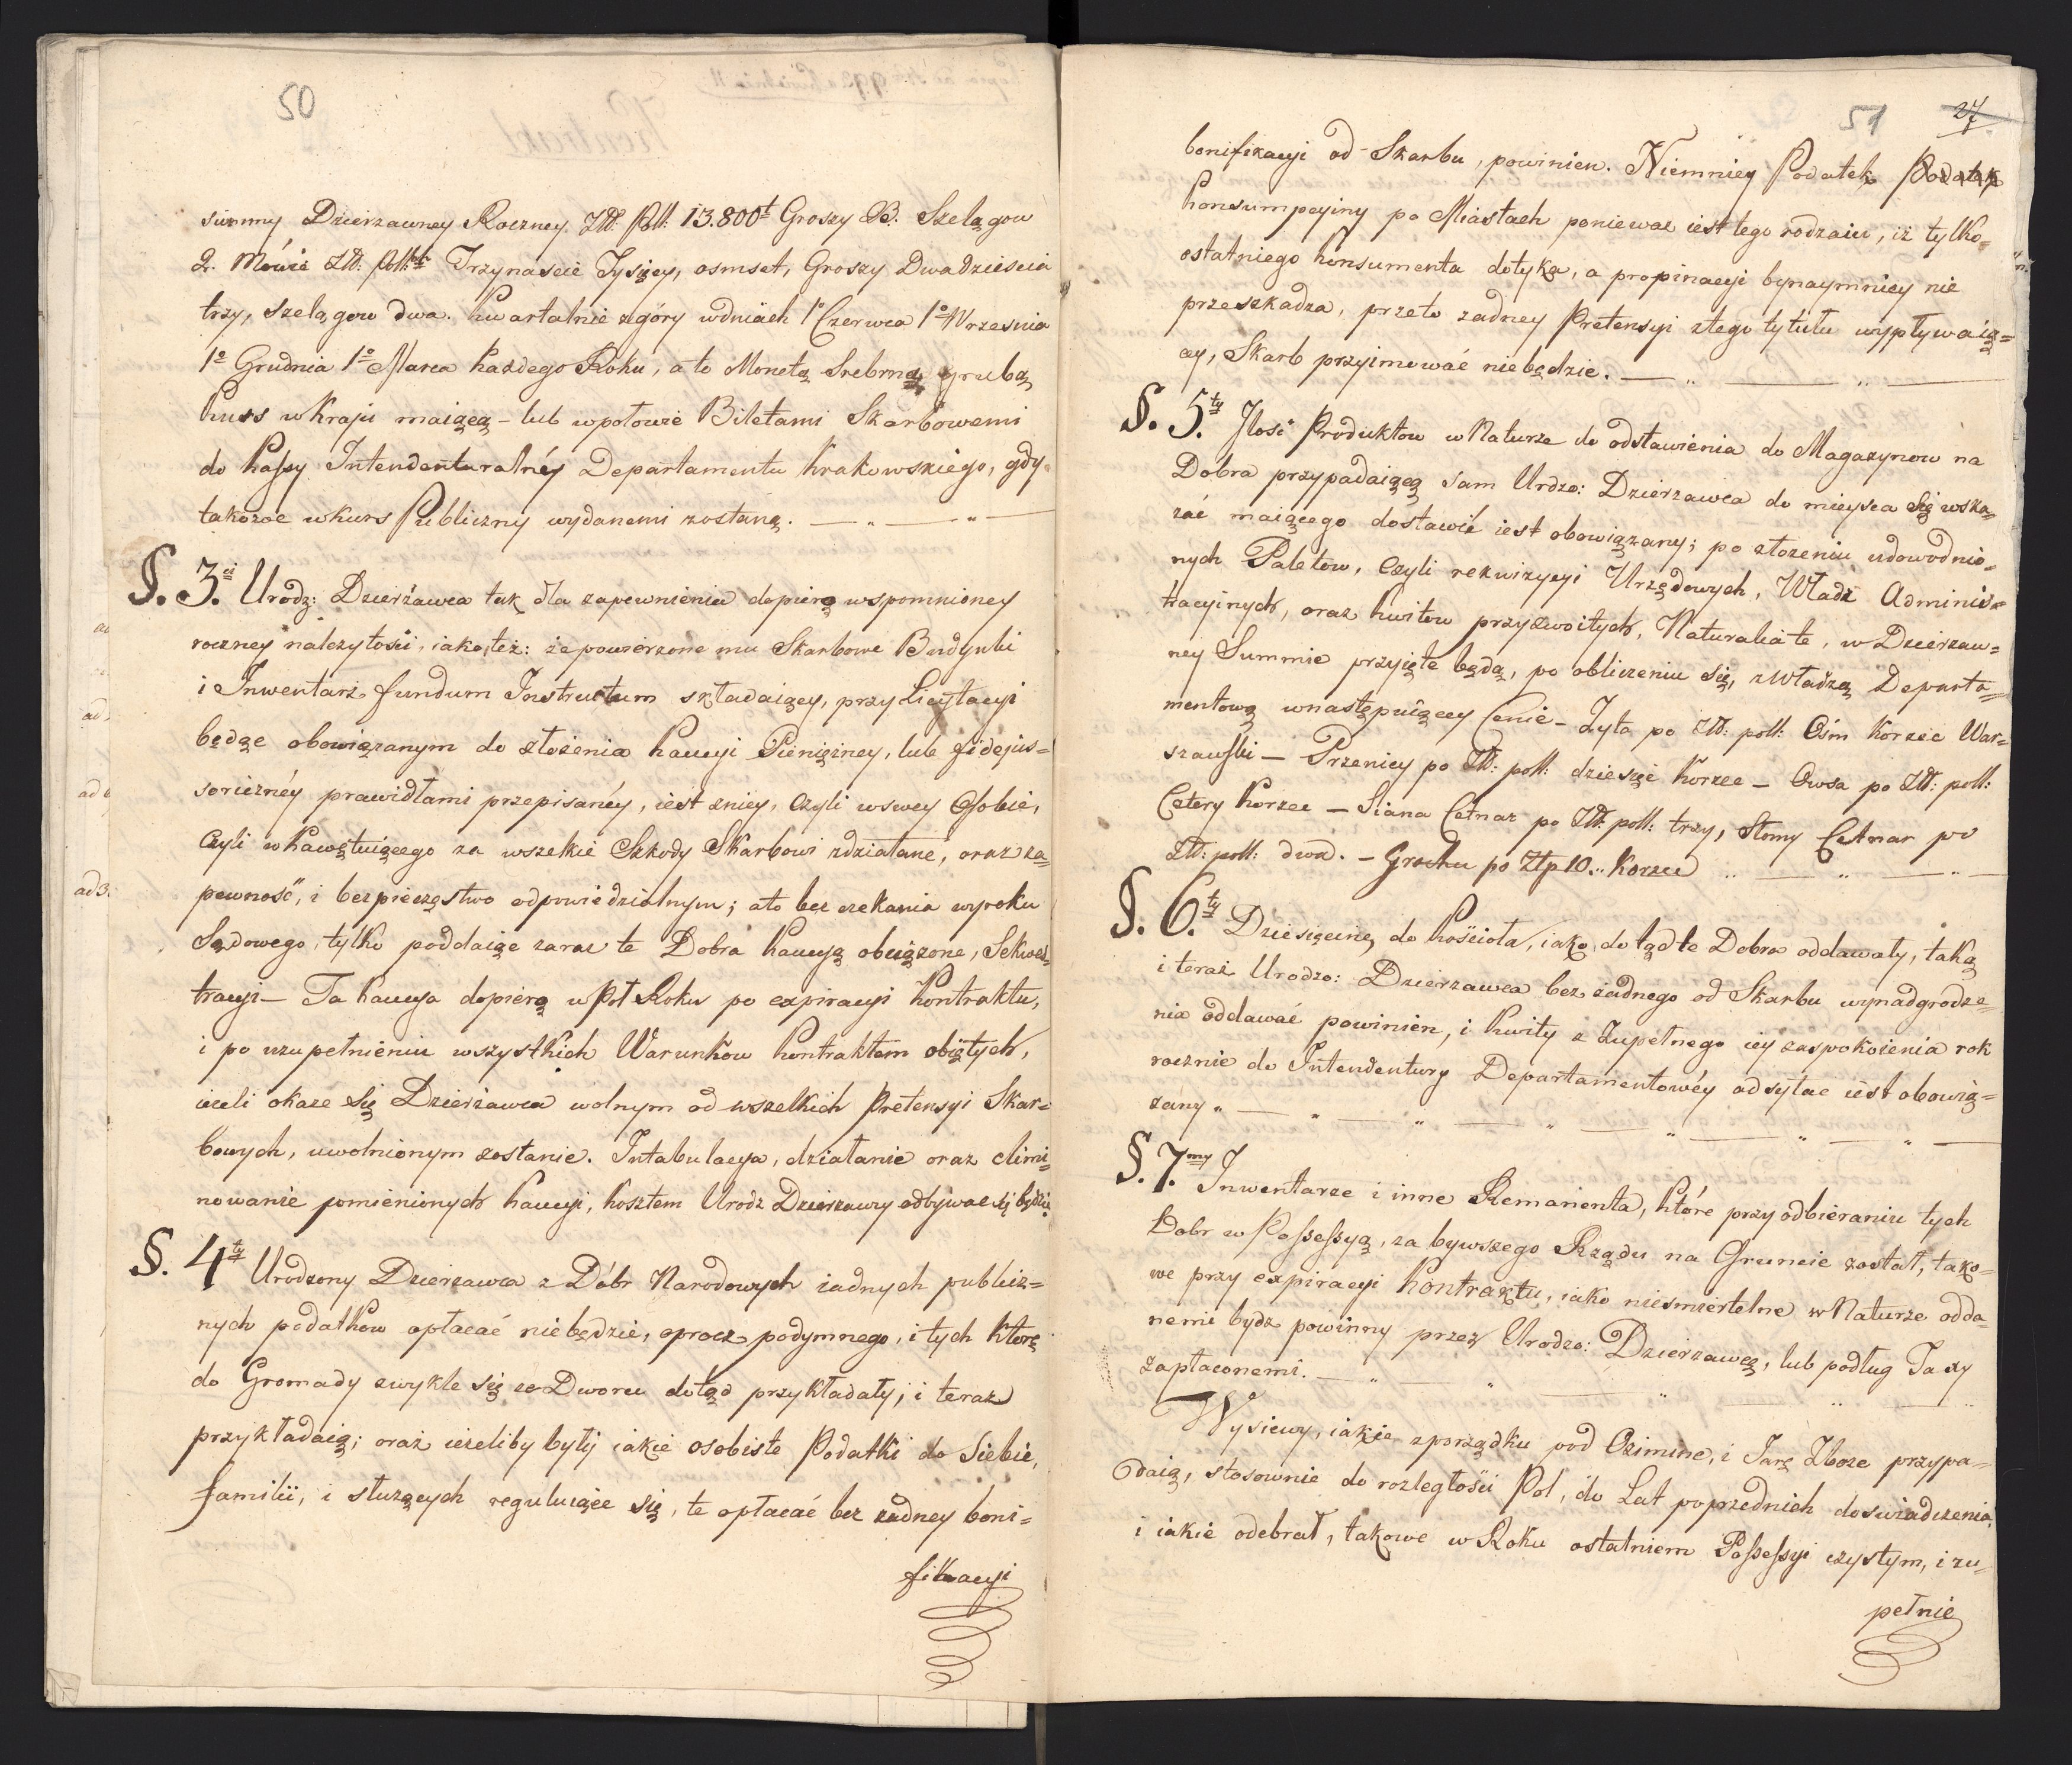 50
summy Dzierzawney Roczney Złł: Poll: 13.800t Groszy 23. Szelągow
2. Mówię Złł: Poll: Trzynascie Tysięcy, osmset, Groszy Dwadziescia
trzy, szelągow dwa. Kwartalnie zgóry wdniach 1o Czerwca 1o Wrzesnia
1o Grudnia 1o Marca każdego Roku, a to Monetą Srebrną grubą
kurs w Kraju maiącą – lub wpołowie Biletami Skarbowemi
do Kassy Intendenturalnéy Departamentu Krakowskiego, gdy
takowe wkurs Publiczny wydanemi zostaną. — „ — „ —
§. 3.ci Urodz: Dzierżawca tak dla zapewnienia dopiero wspomnioney
roczney należytości, iako też: że powierzone mu Skarbowe Budynki
i Inwentarz fundum Instructum składaiący, przy Licytacyi
będąc obowiązanym do złożenia Kaucyi Pieniężney, lub fidejus=
soriczněy prawidłami przepisanéy, iest zniey, czyli wswey Osobie,
czyli wkawętuiącego za wszelkie Szkody Skarbowi zdziałane, oraz za=
pewność, i bezpieczęstwo odpowiedzialnym; ato bez czekania wyroku
Sądowego, tylko poddaiąc zaraz te Dobra kaucyą obciążone, Sekwes=
tracyi — Ta kaucya dopiero w Poł Roku po expiracyi Kontraktu,
i po uzupełnieniu wszystkich Warunków Kontraktem obiętych,
ieżeli okaze się Dzierżawca wolnym od wszelkich Pretensyi Skar=
bowych, uwolnionym zostanie. Intabulacya, działanie oraz elimi=
nowanie pomienionych kaucyi, kosztem Urodz Dzierzawcy odbywać się będzie
§. 4ty Urodzony Dzierzawca z Dóbr Narodowych żadnych publicz=
nych podatkow opłacać niebędzie, oprocz podymnego, i tych które
do Gromady zwykle się ze Dworu dotąd przykładały, i teraz
przykładaią; oraz ieżeliby były iakie osobiste Podatki do Siebie,
familii, i służących reguluiące się, te opłacać bez żadney boni=
fikacyi
ad
ad
ad 3.
51 27
bonifikacyi od Skarbu, powinien. Niemniey Podatek Podatek
Konsumpcyiny po Miastach poniewaz iest tego rodzaiu, iż tylko=
ostatniego konsumenta dotyka, a propinacyi bynaymniey nie
przeszkadza, przeto zadney Pretensyi ztego tytułu wypływaią=
cy, Skarb przyimować niebędzie. — „ — „ —
§. 5.ty Ilość Produktow w Naturze do odstawienia do Magazynow na
Dobra przypadaiącą sam Urdzo: Dzierzawca do mieysca się wska=
zać maiącego dostawić iest obowiązany; po złożeniu udowodnio=
nych Paletow, czyli rekwizycyi Urzędowych, Władz Adminis=
tracyinych, oraz kwitow przyzwoitych, Naturalia te, w Dzierzaw=
ney Summie przyięte będą, po obliczeniu się, z Władzą Departa=
mentową wnastępuiącey Cenie – Zyta po Złł: poll: Ośm Korzec War=
szawski — Przenicy po Złł: poll: dziesięć korzec — Owsa po Złł: poll:
Cztery Korzec — Siana Cetnar po Złł: poll: trzy, Słomy Cetnar po
Złł: poll: dwa. – Grochu po Złp 10.. Korzec „ — „ — „ —
§. 6.ty Dziesięcinę do Kościoła, iako dotąd te Dobra oddawały, taką
i teraz Urodzo: Dzierzawca bez żadnego od Skarbu wynadgrodze=
nia oddawać powinien, i kwity z Zupełnego iey zaspokoienia rok
rocznie do Intendentury Departamentowéy odsyłać iest obowią=
zany „ — „ — „ — „ — „ — „ — „ —
§. 7.my Inwentarze i inne Remanenta, które przy odbieraniu tych
Dobr w Possessyą, za bywszego Rządu na Gruncie zostal, tako=
we przy expiracyi Kontraktu, iako niesmiertelne w Naturze odda=
nemi bydz powinny przez Urodzo: Dzierzawcę, lub podług Taxy
zapłaconemi. — „ — „ — „ — „ — „
Wysiewy, iakie zporządku pod Oziminę, i Jarę Zboze przypa=
daią, stosownie do rozległości Pol, do Lat poprzednich doswiadczenia,
i iakie odebrał, takowe w Roku ostatniem Possessyi czystym, i zu=
pełnie